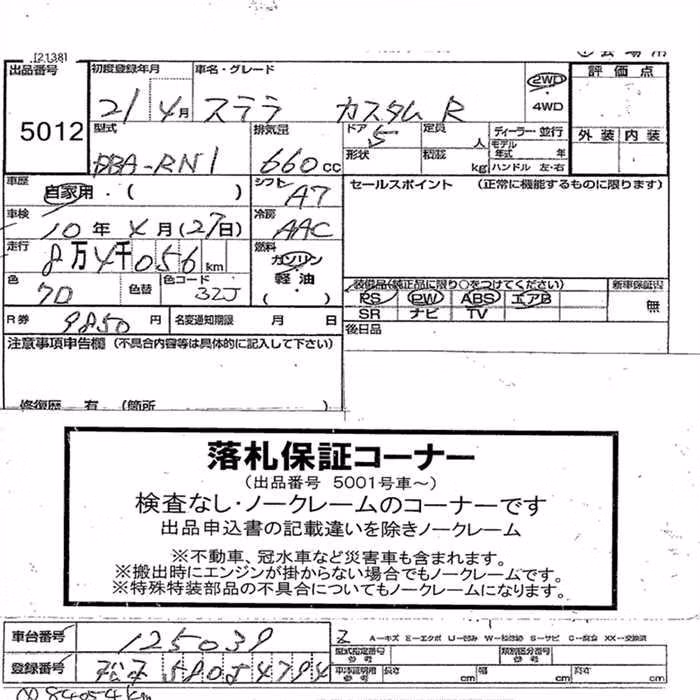 [2138]
出品番号 初度登録年月 車名・グレード 2WD 評価点
5012 21 4月 ステラ カスタム R 4WD
型式 排気量 ドア 5 定員 人 ディーラー・並行 外装 内装
DBA-RN1 660cc 形状 積載 kg モデル年式 年 ハンドル 左・右
車歴 自家用・( ) シフト A7 セールスポイント (正常に機能するものに限ります)
車検 10年4月(27日) 冷房 AAC
走行 8万4千056km 燃料 ガソリン 軽油 ( )
色 色替 色コード 32J 装備品(純正品に限り○をつけてください) 新車保証書
PS PW ABS エアB 無
SR ナビ TV
R券 9850円 名変通知期限 月 日 後日品
注意事項申告欄 (不具合内容等は具体的に記入して下さい)
修復歴 有 (箇所 )
落札保証コーナー
(出品番号 5001号車~)
検査なし・ノークレームのコーナーです
出品申込書の記載違いを除きノークレーム
※不動車、冠水車など災害車も含まれます。
※搬出時にエンジンが掛からない場合でもノークレームです。
※特殊特装部品の不具合についてもノークレームになります。
車台番号 125039 A-キズ E-エクボ U-凹み W-補修跡 S-サビ C-腐食 XX-交換済
型式指定番号 参考 類別区分番号 参考
登録番号 580 4794 車体証明用 参考 長さ cm 幅 cm 高さ cm